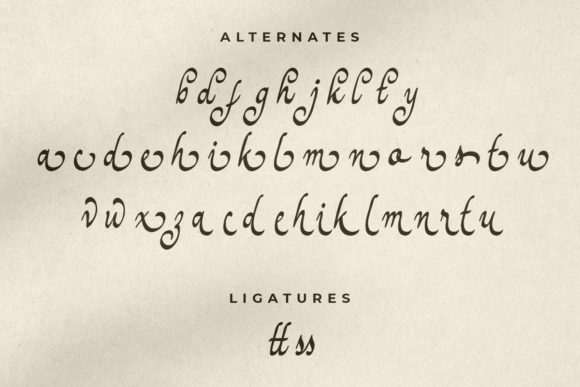 ALTERNATES
b d f g h j k l t y
a c d e h i k l m n o r s t u
v w x z a c d e h i k l m n r t u
LIGATURES
tt ss